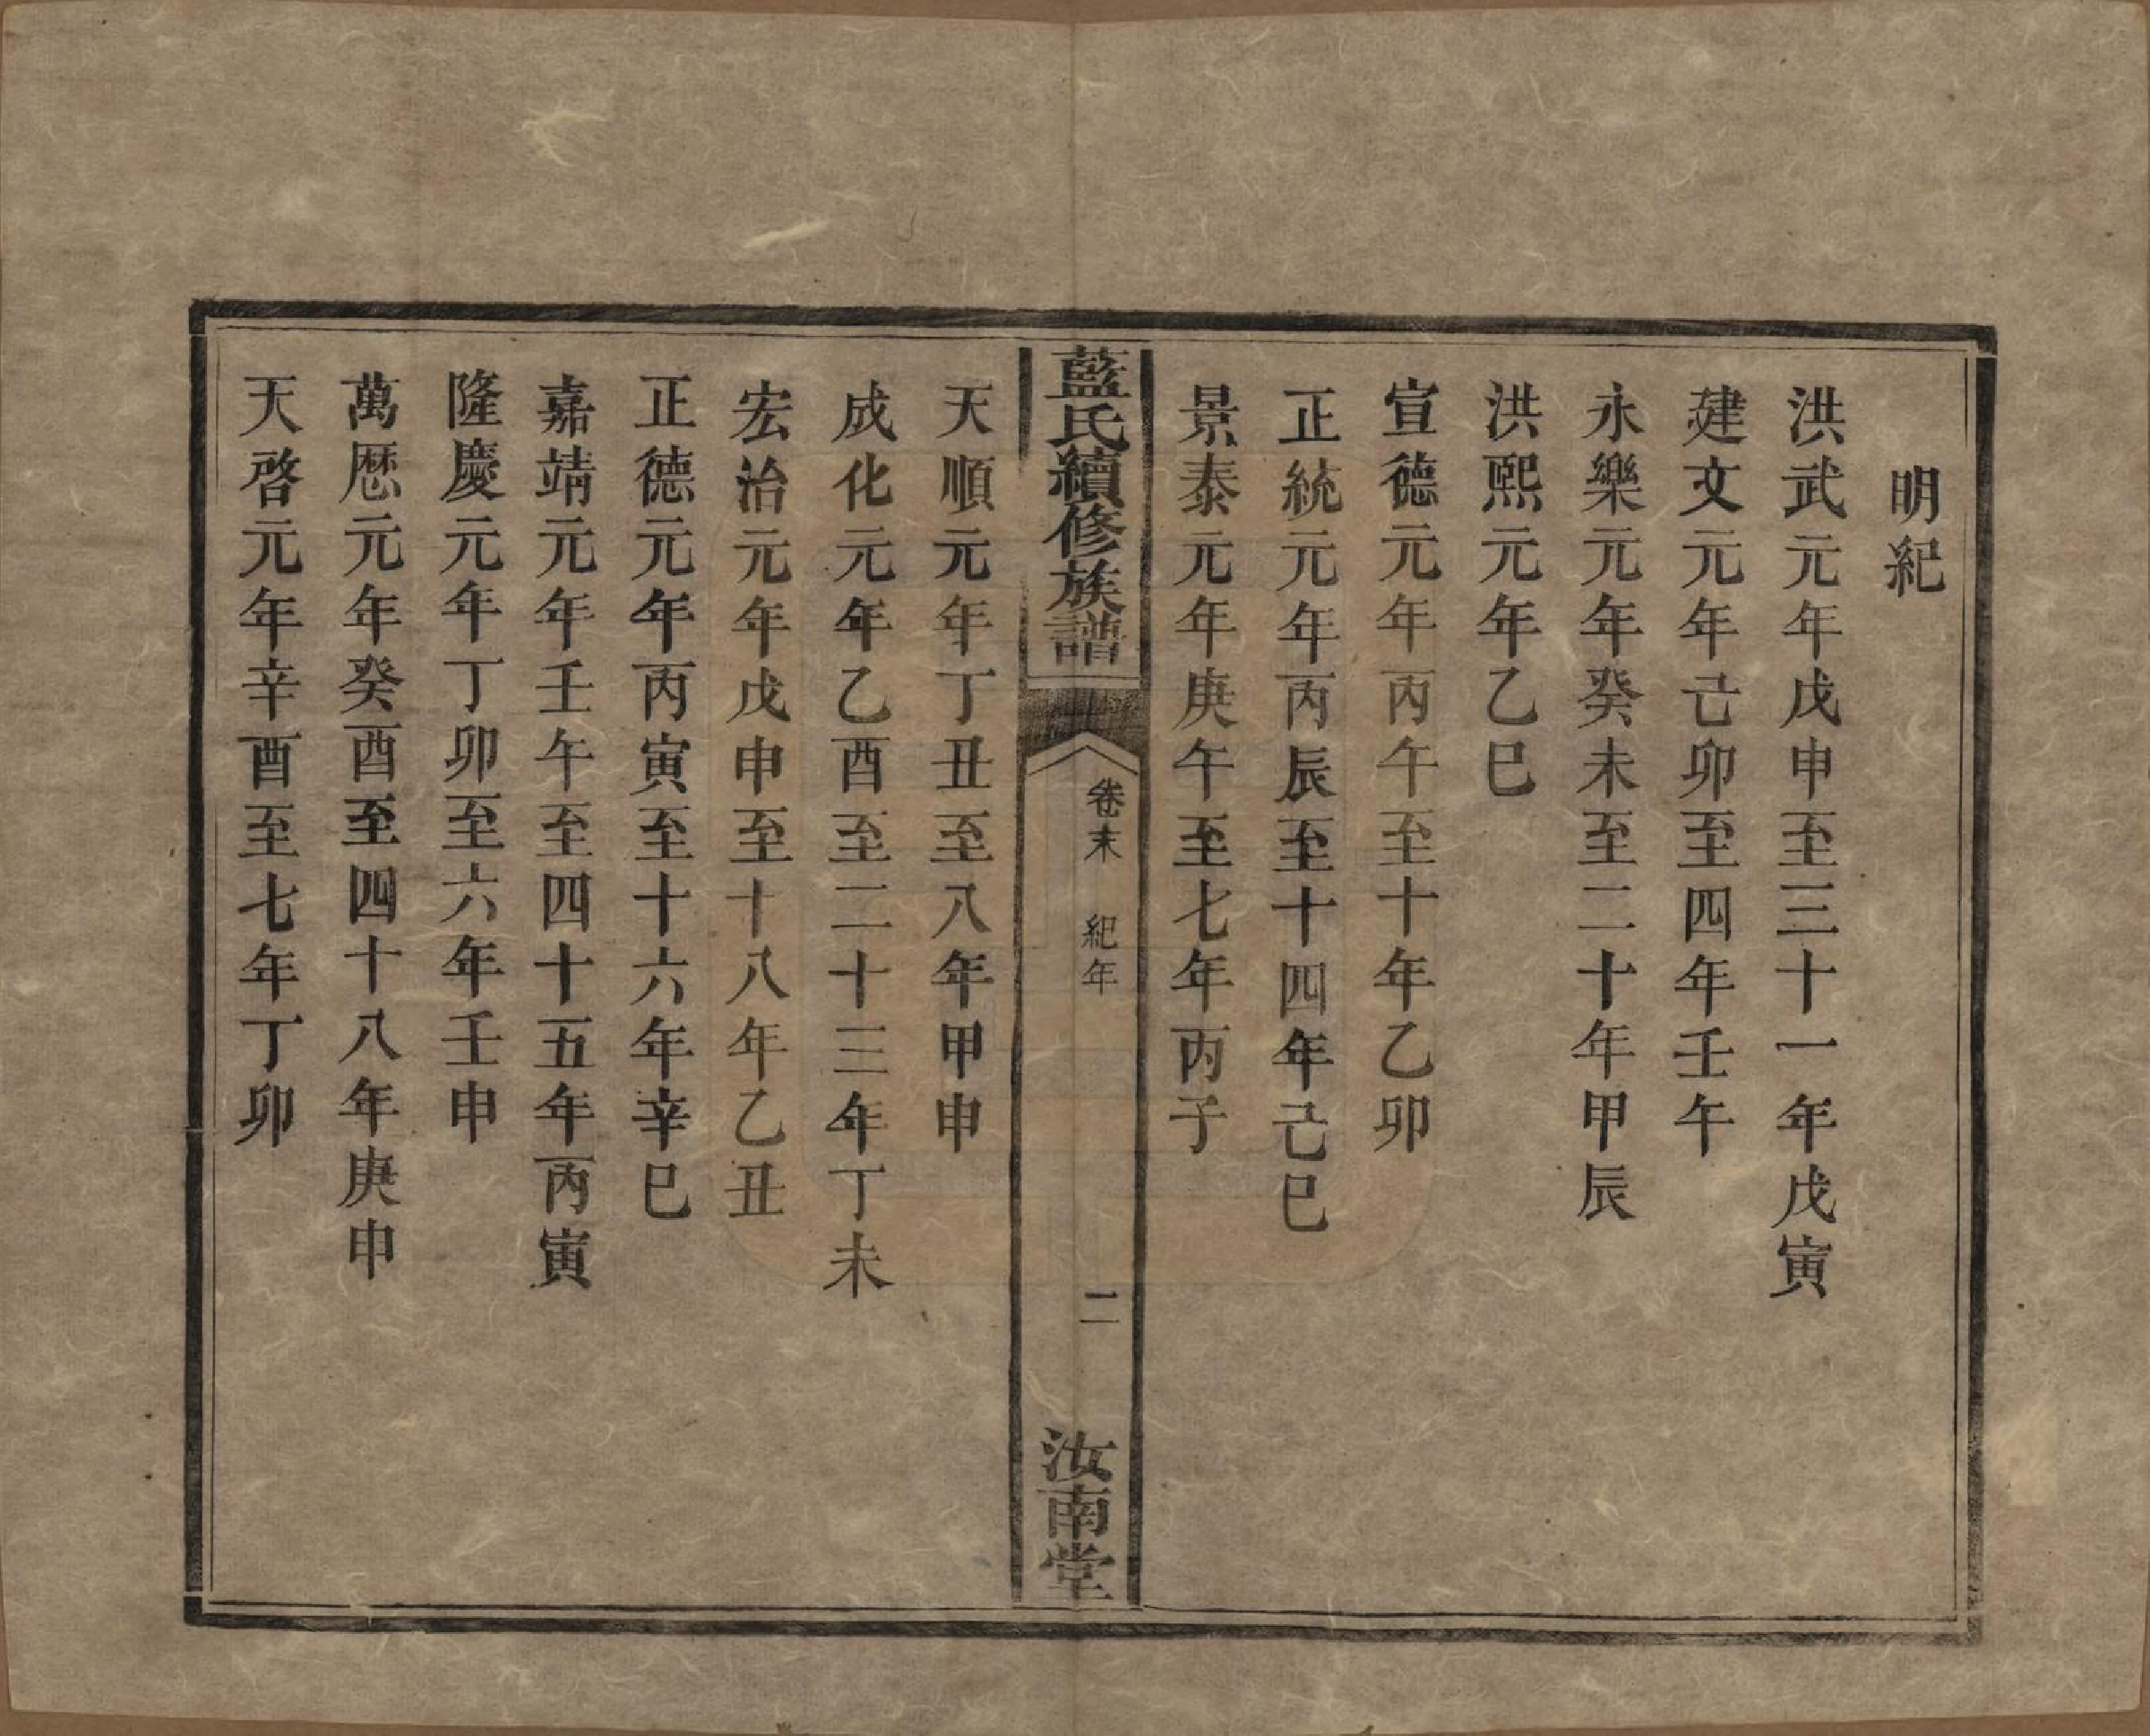 明紀
洪武元年戊申至三十一年戊寅
建文元年己卯至四年壬午
永樂元年癸未至二十年甲辰
洪熙元年乙巳
宣德元年丙午至十年乙卯
正統元年丙辰至十四年己巳
景泰元年庚午至七年丙子
藍氏續修族譜
卷末 紀年
二
汝南堂
天順元年丁丑至八年甲申
成化元年乙酉至二十三年丁未
宏治元年戊申至十八年乙丑
正德元年丙寅至十六年辛巳
嘉靖元年壬午至四十五年丙寅
隆慶元年丁卯至六年壬申
萬厯元年癸酉至四十八年庚申
天啓元年辛酉至七年丁卯